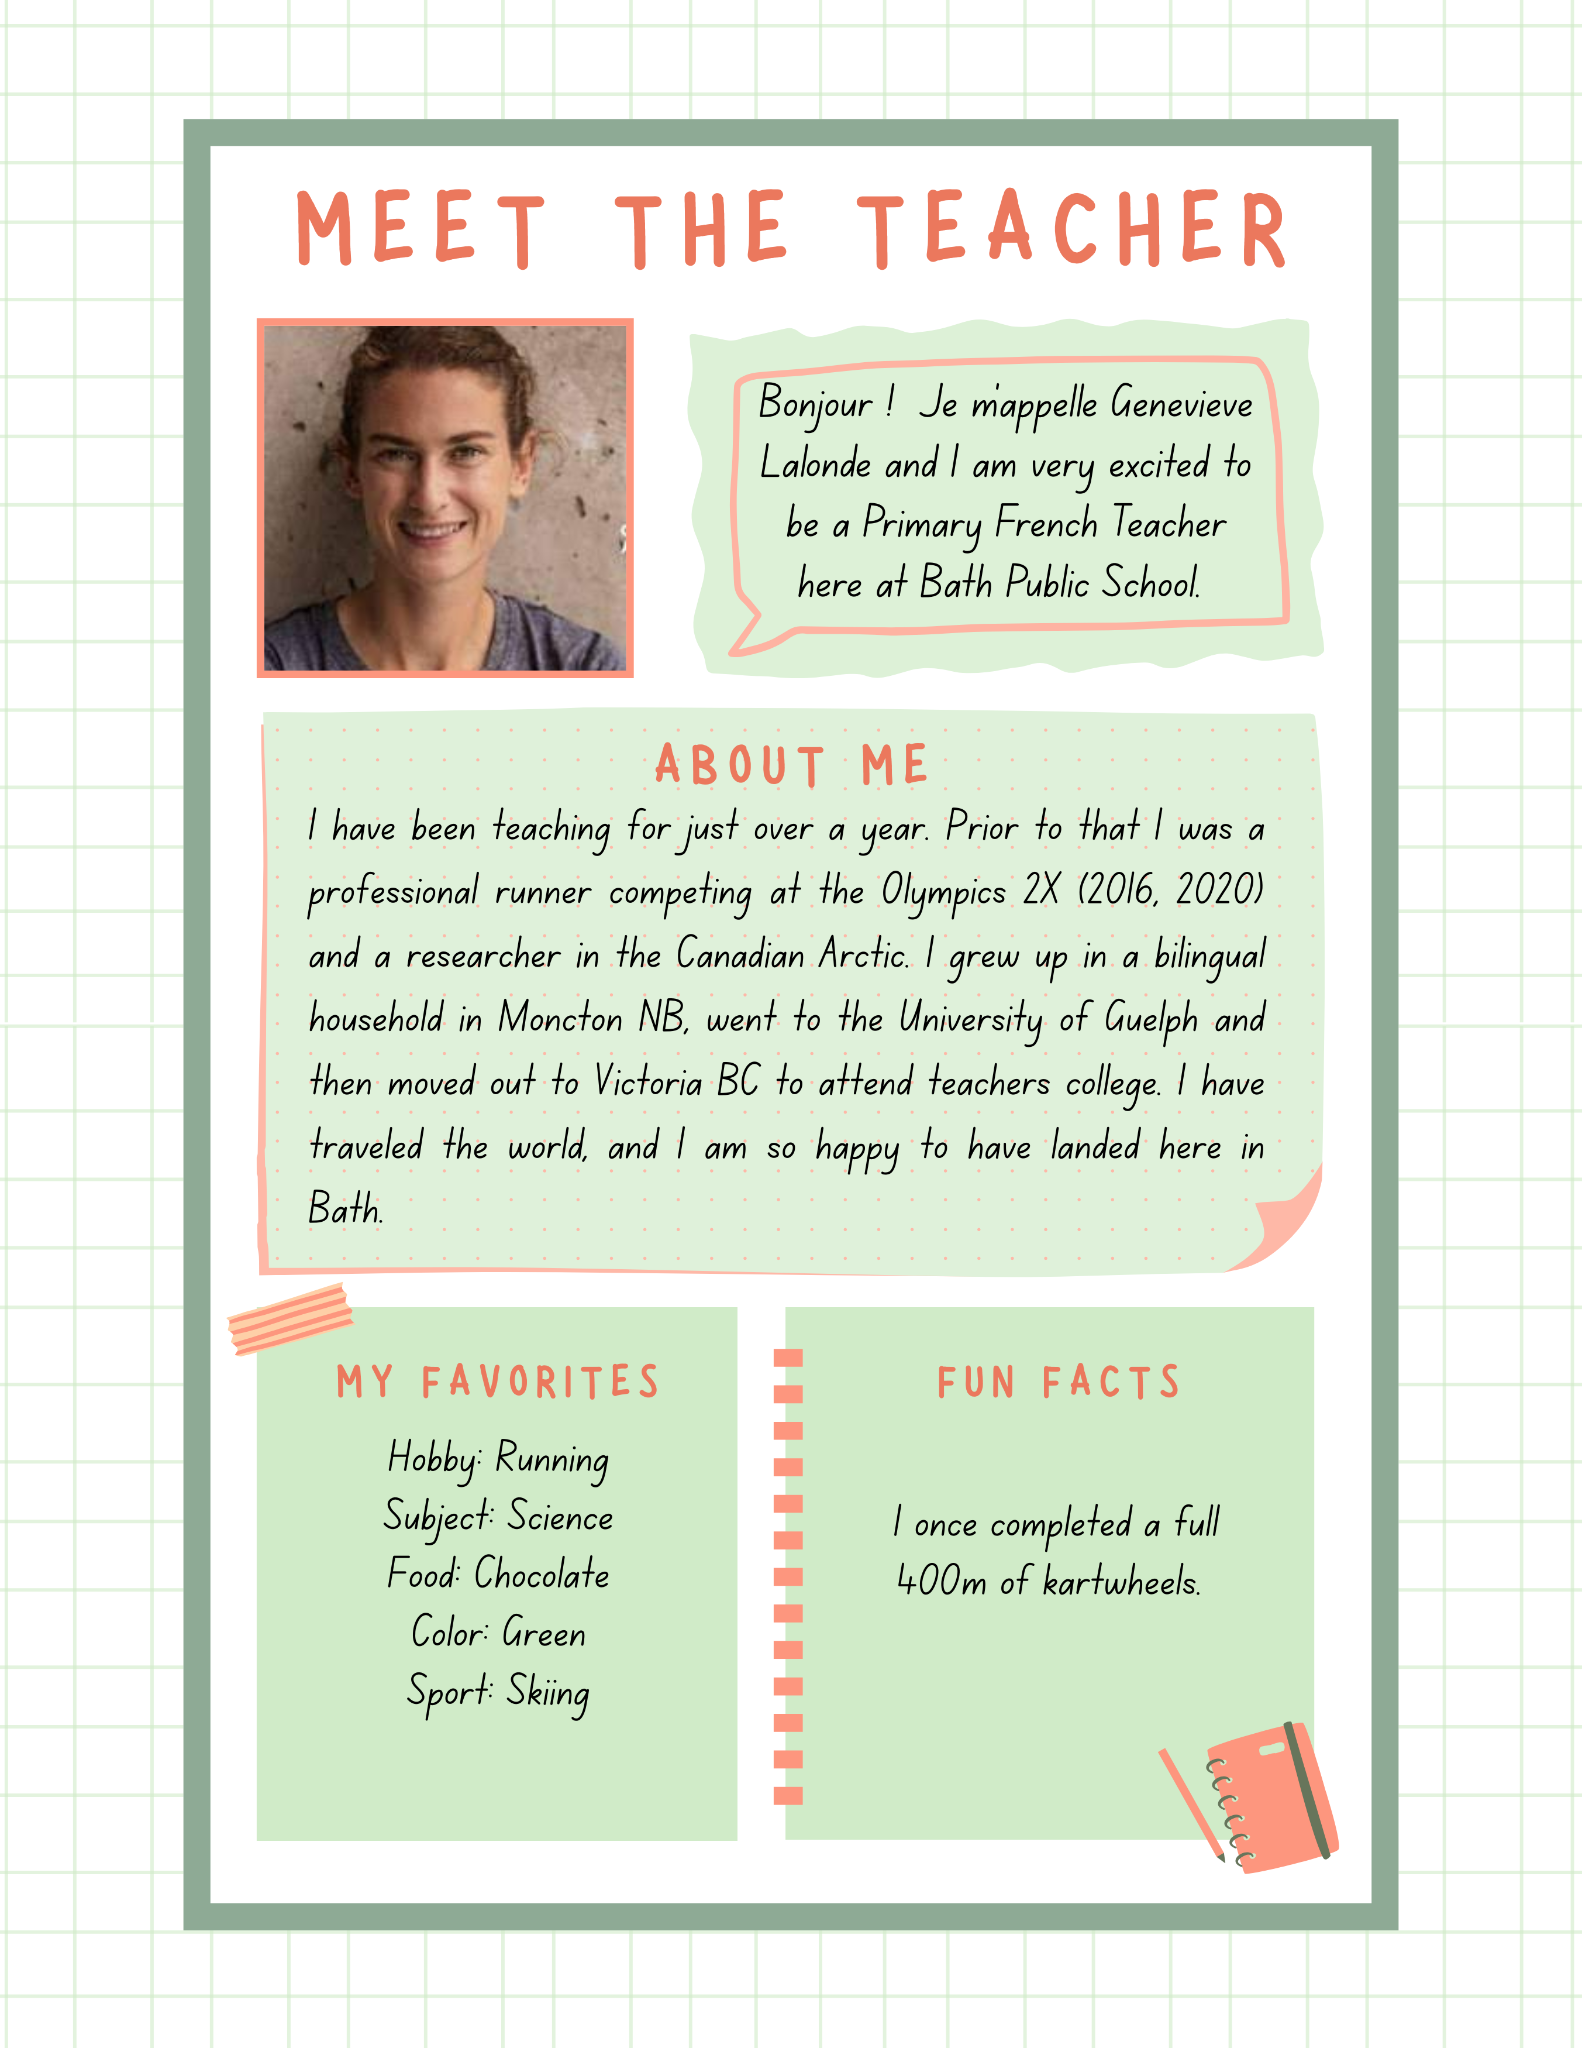 MEET THE TEACHER
Bonjour ! Je m'appelle Genevieve
Lalonde and I am very excited to
be a Primary French Teacher
here at Bath Public School.
ABOUT ME
I have been teaching for just over a year. Prior to that I was a
professional runner competing at the Olympics 2X (2016, 2020)
and a researcher in the Canadian Arctic. I grew up in a bilingual
household in Moncton NB, went to the University of Guelph and
then moved out to Victoria BC to attend teachers college. I have
traveled the world, and I am so happy to have landed here in
Bath.
MY FAVORITES
Hobby: Running
Subject: Science
Food: Chocolate
Color: Green
Sport: Skiing
FUN FACTS
I once completed a full
400m of kartwheels.